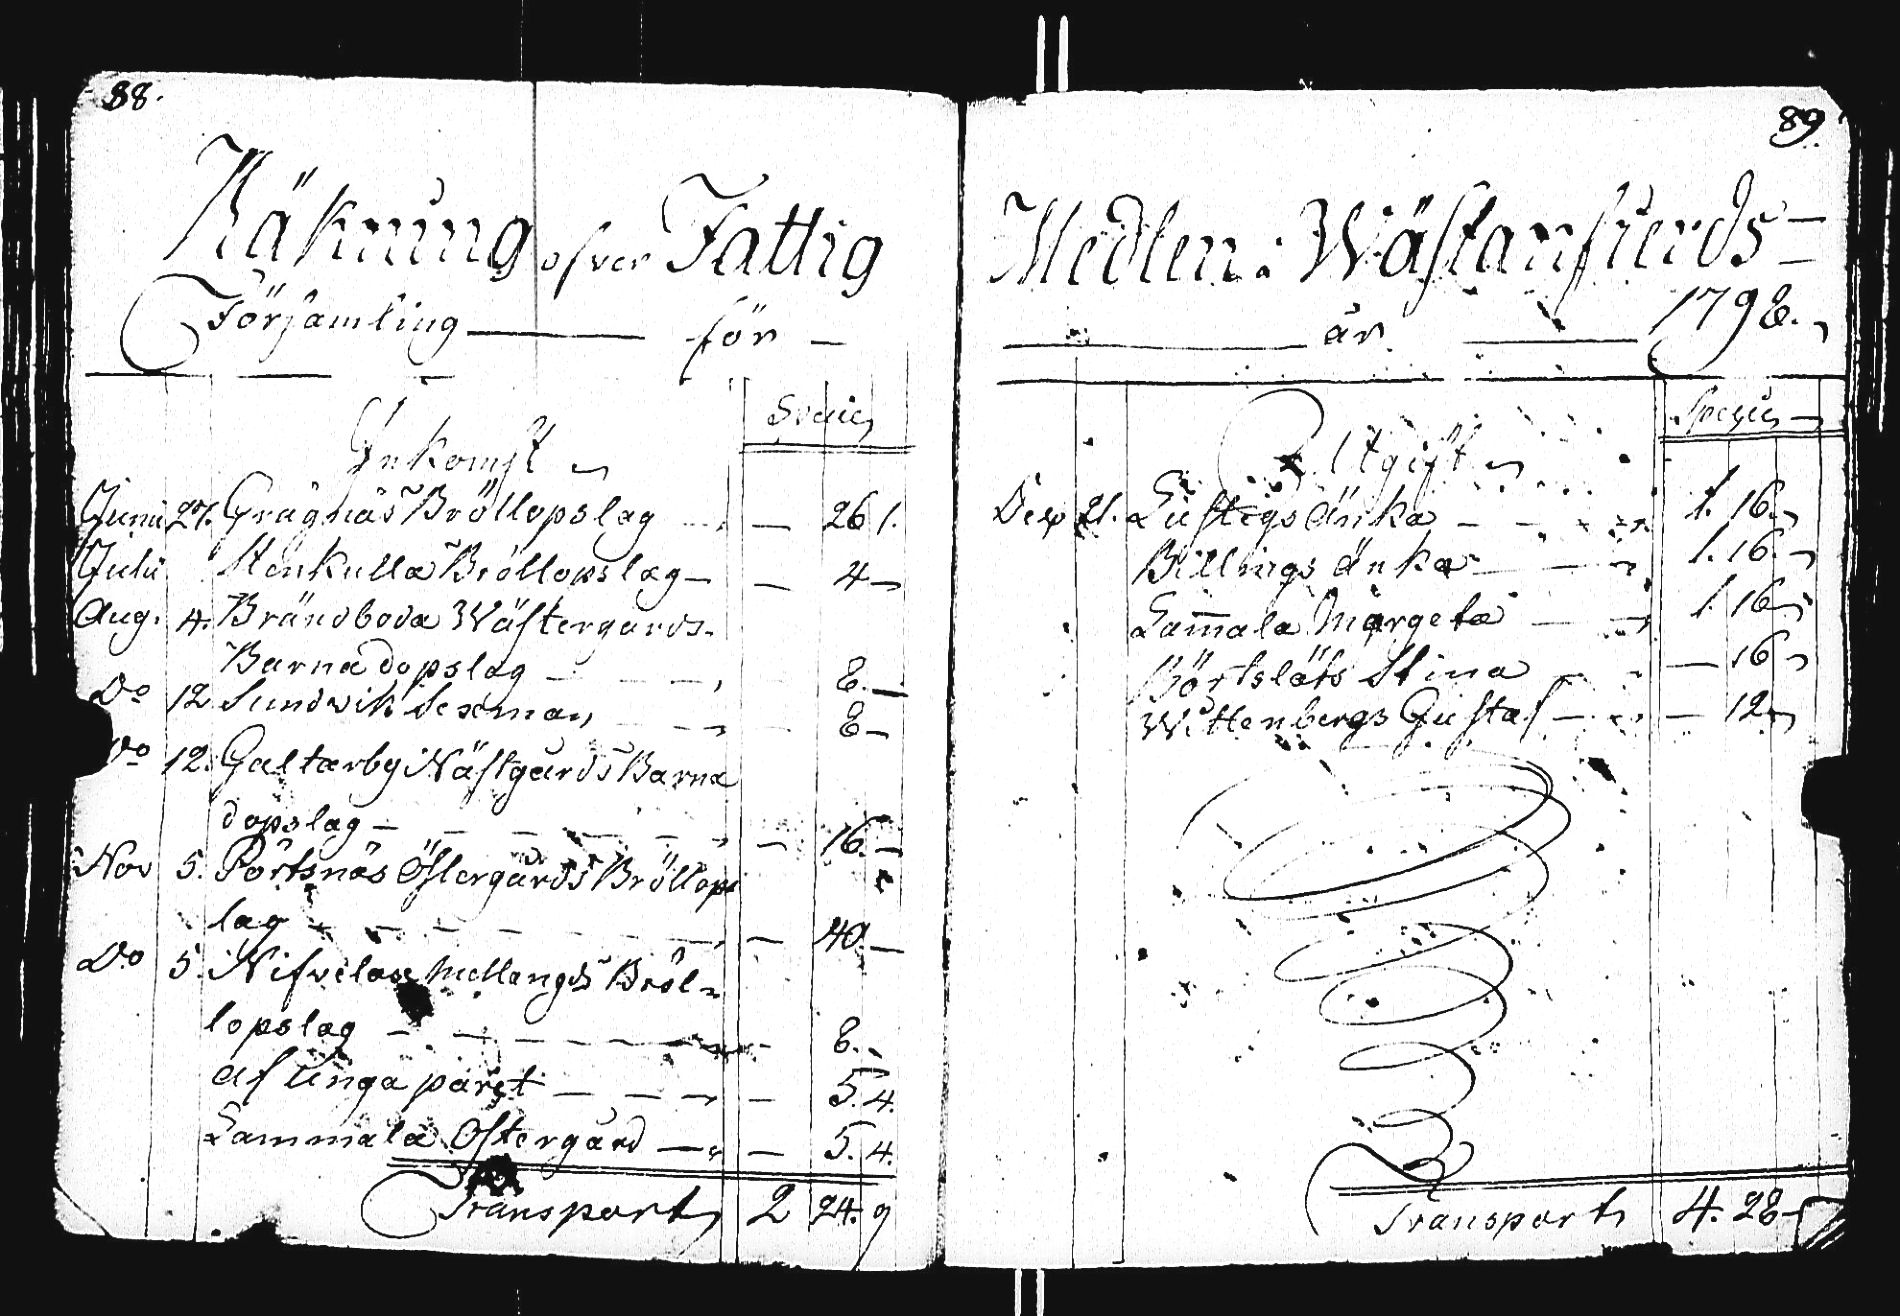 88.
Räkning öfver Fattig
Församling för
Inkomst
Species
Junii 27. Grågnäs Bröllopslag — 26 1.
Julii Stenkulla Bröllopslag — 4 —
Aug. 4. Brändboda Wästergards-
Barnadopslag — 8. —
Do 12 Sundvik Sexman — 8 —
Do 12. Galtarby Nästgårds Barna
dopslag — 16. —
Nov 5. Pörtsnäs Östergårds Bröllops
lag — 40. —
Do 5. Nifvelax Mellangds Bröl-
lopslag — 8. —
af Unga paret — 5. 4.
Lammala Östergård — 5. 4.
Transport 2 24. 9
89.
Medlen: Wästanfierds
år 1798.
Utgift
Species
Dec 21. Lustigs änka 1. 16. —
Billings änka 1. 16. —
Lam̄ala Margeta 1. 16 —
Börtsläts Stina — 16 —
Wittenbergs Gustaf — 12 —
Transport 4. 28 —